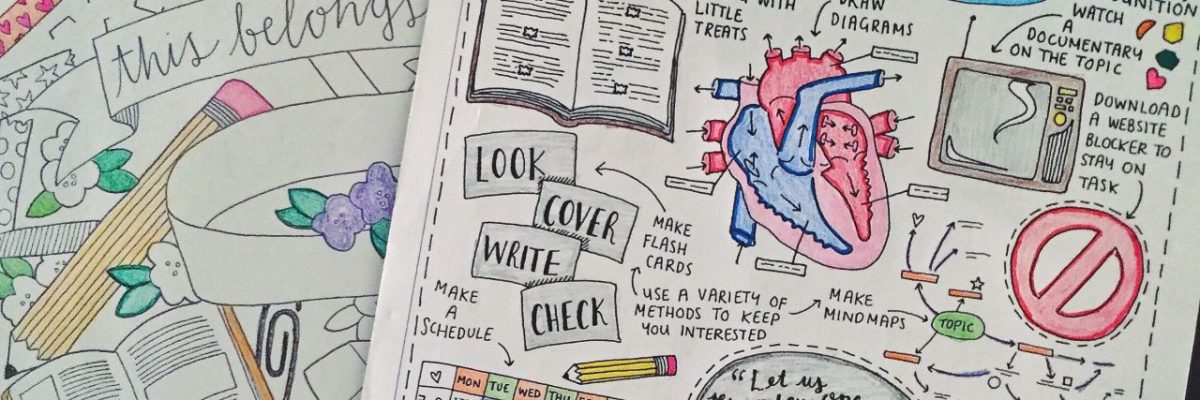 this belongs
WITH
LITTLE
TREATS
DRAW
DIAGRAMS
WATCH
A
DOCUMENTARY
ON THE TOPIC
DOWNLOAD
A WEBSITE
BLOCKER TO
STAY ON
TASK
LOOK
COVER
WRITE
CHECK
MAKE
FLASH
CARDS
USE A VARIETY OF
METHODS TO KEEP
YOU INTERESTED
MAKE
MINDMAPS
TOPIC
MAKE
A
SCHEDULE
MON TUE WED THU
"Let us